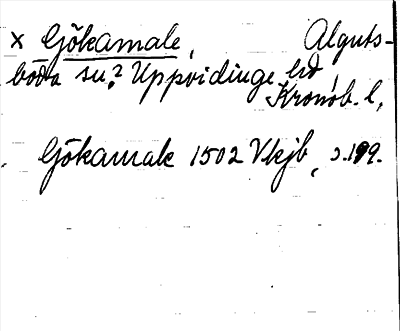 × Gökamale, Alguts-
boda sn? Uppvidinge hd,
Kronob. l,
Gökamale 1502 Vkjb, s. 199.